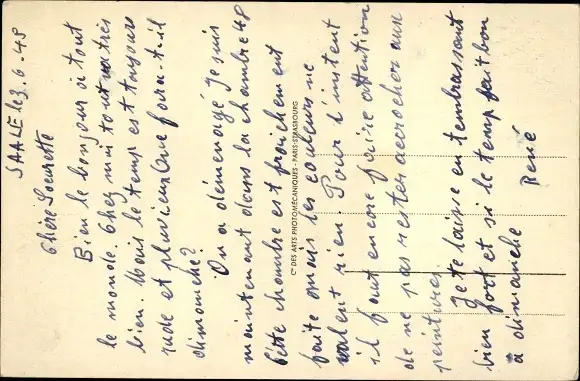 SAALE le 3.6.48
Chère Soeurette
Bien le bonjour à tout
le monde. Chez moi tout va très
bien. Mais le temps est toujours
rude et pluvieux Que fera-t-il
dimanche?
On a déménagé Je suis
maintenant dans la chambre 48
Cette chambre est fraichement
faite mais les couleurs ne
valent rien. Pour l'instent
il faut encore faire attention
de ne pas rester accrocher aux
peintures.
Je te laisse en t'embrassant
bien fort et si le temp fait bon
à dimanche
René
Cie DES ARTS PHOTOMÉCANIQUES - PARIS-STRASBOURG